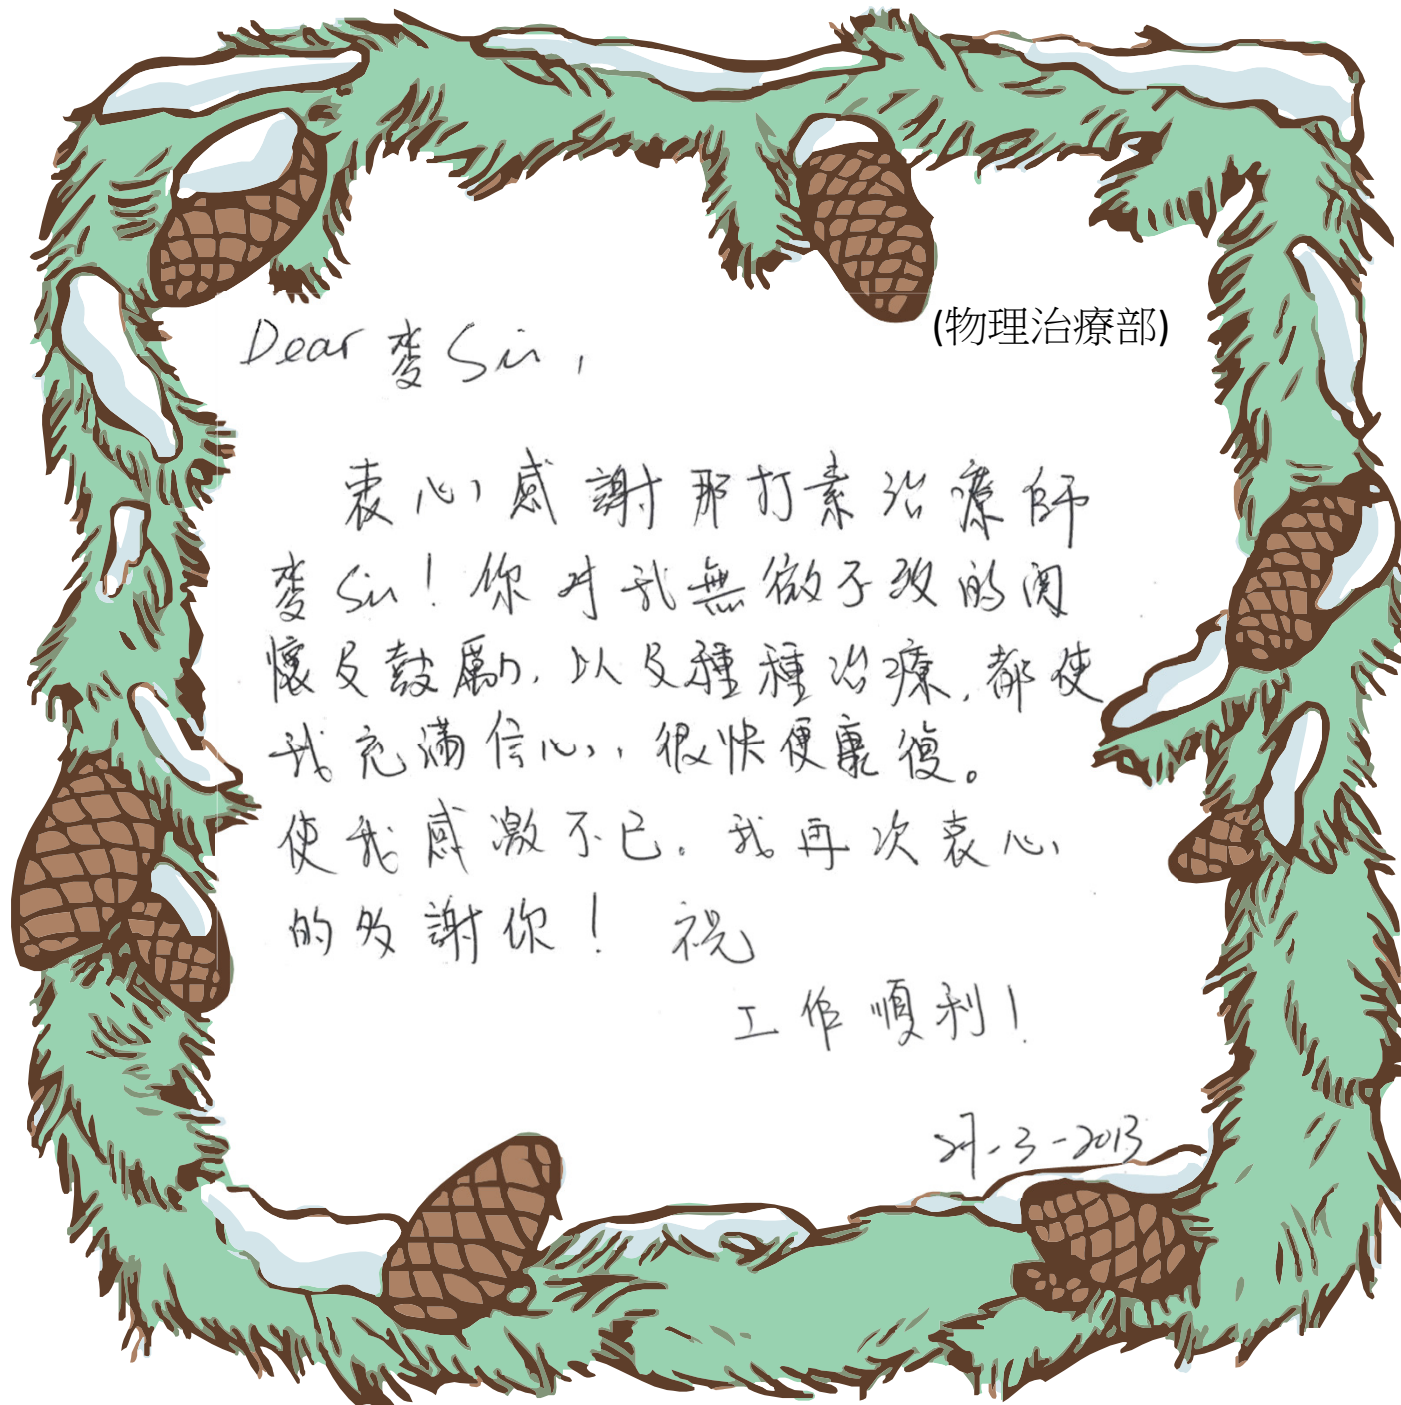 (物理治療部)
Dear 麥 Sir,
衷心感謝那打素治療師
麥 Sir! 你对我無微不致的関
懷及鼓勵, 以及種種治療, 都使
我充滿信心, 很快便康復。
使我感激不已。我再次衷心
的多謝你! 祝
工作順利!
27-3-2013